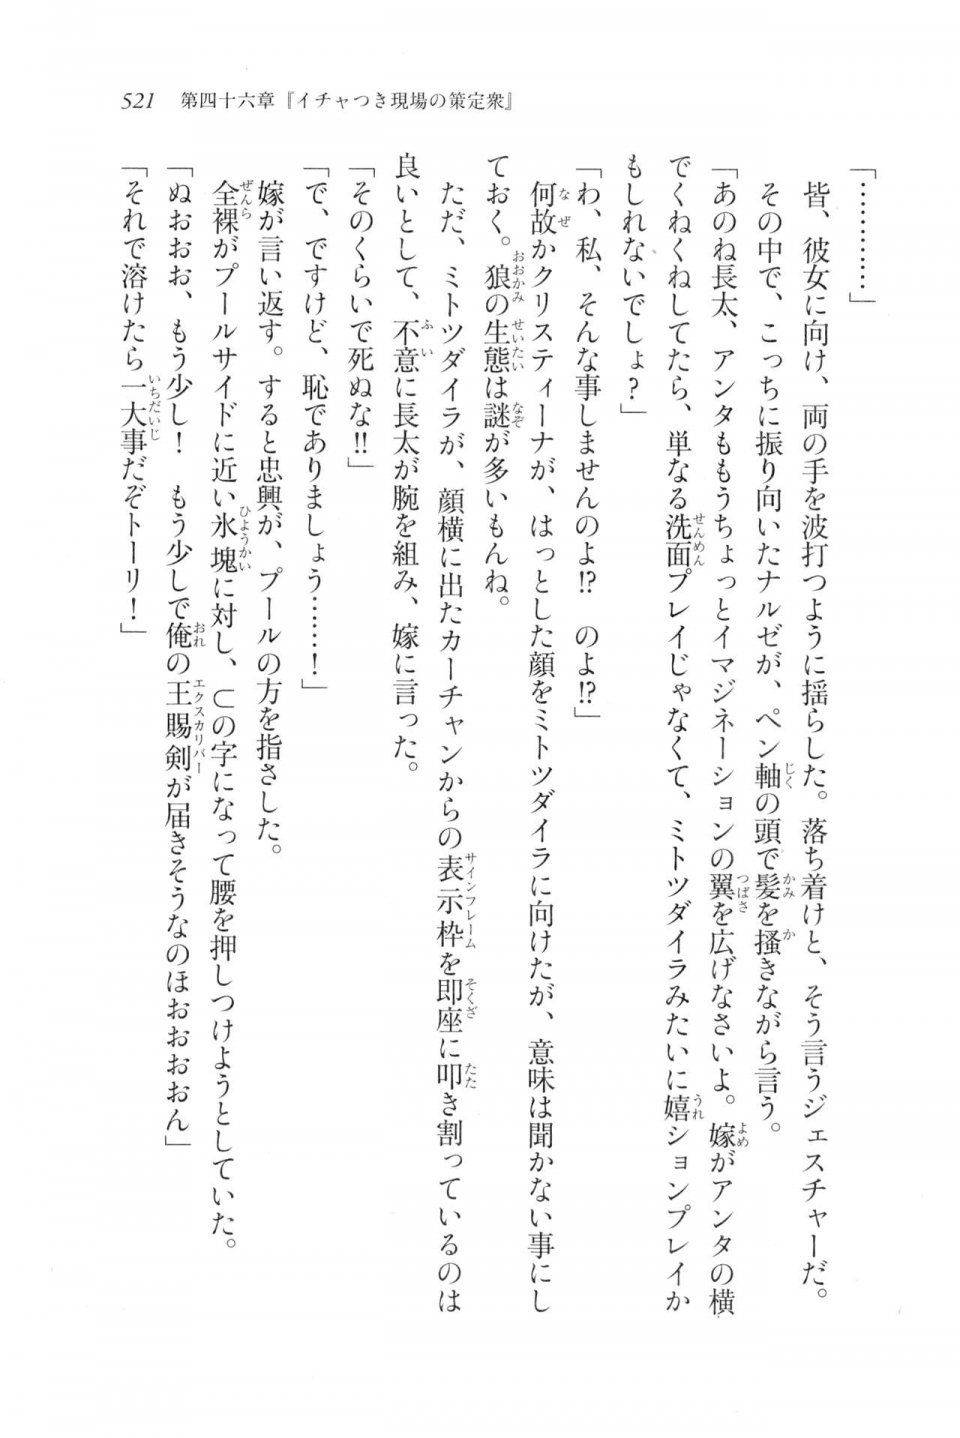 521　第四十六章『イチャつき現場の策定衆』
「…………」
　皆、彼女に向け、両の手を波打つように揺らした。落ち着けと、そう言うジェスチャーだ。
　その中で、こっちに振り向いたナルゼが、ペン軸の頭で髪を掻きながら言う。
「あのね長太、アンタももうちょっとイマジネーションの翼を広げなさいよ。嫁がアンタの横
でくねくねしてたら、単なる洗面プレイじゃなくて、ミトツダイラみたいに嬉ションプレイか
もしれないでしょ？」
「わ、私、そんな事しませんのよ!?　のよ!?」
　何故かクリスティーナが、はっとした顔をミトツダイラに向けたが、意味は聞かない事にし
ておく。狼の生態は謎が多いもんね。
　ただ、ミトツダイラが、顔横に出たカーチャンからの表示枠を即座に叩き割っているのは
良いとして、不意に長太が腕を組み、嫁に言った。
「そのくらいで死ぬな!!」
「で、ですけど、恥でありましょう……！」
　嫁が言い返す。すると忠興が、プールの方を指さした。
　全裸がプールサイドに近い氷塊に対し、⊂の字になって腰を押しつけようとしていた。
「ぬおおお、もう少し！　もう少しで俺の王賜剣が届きそうなのほおおおおん」
「それで溶けたら一大事だぞトーリ！」